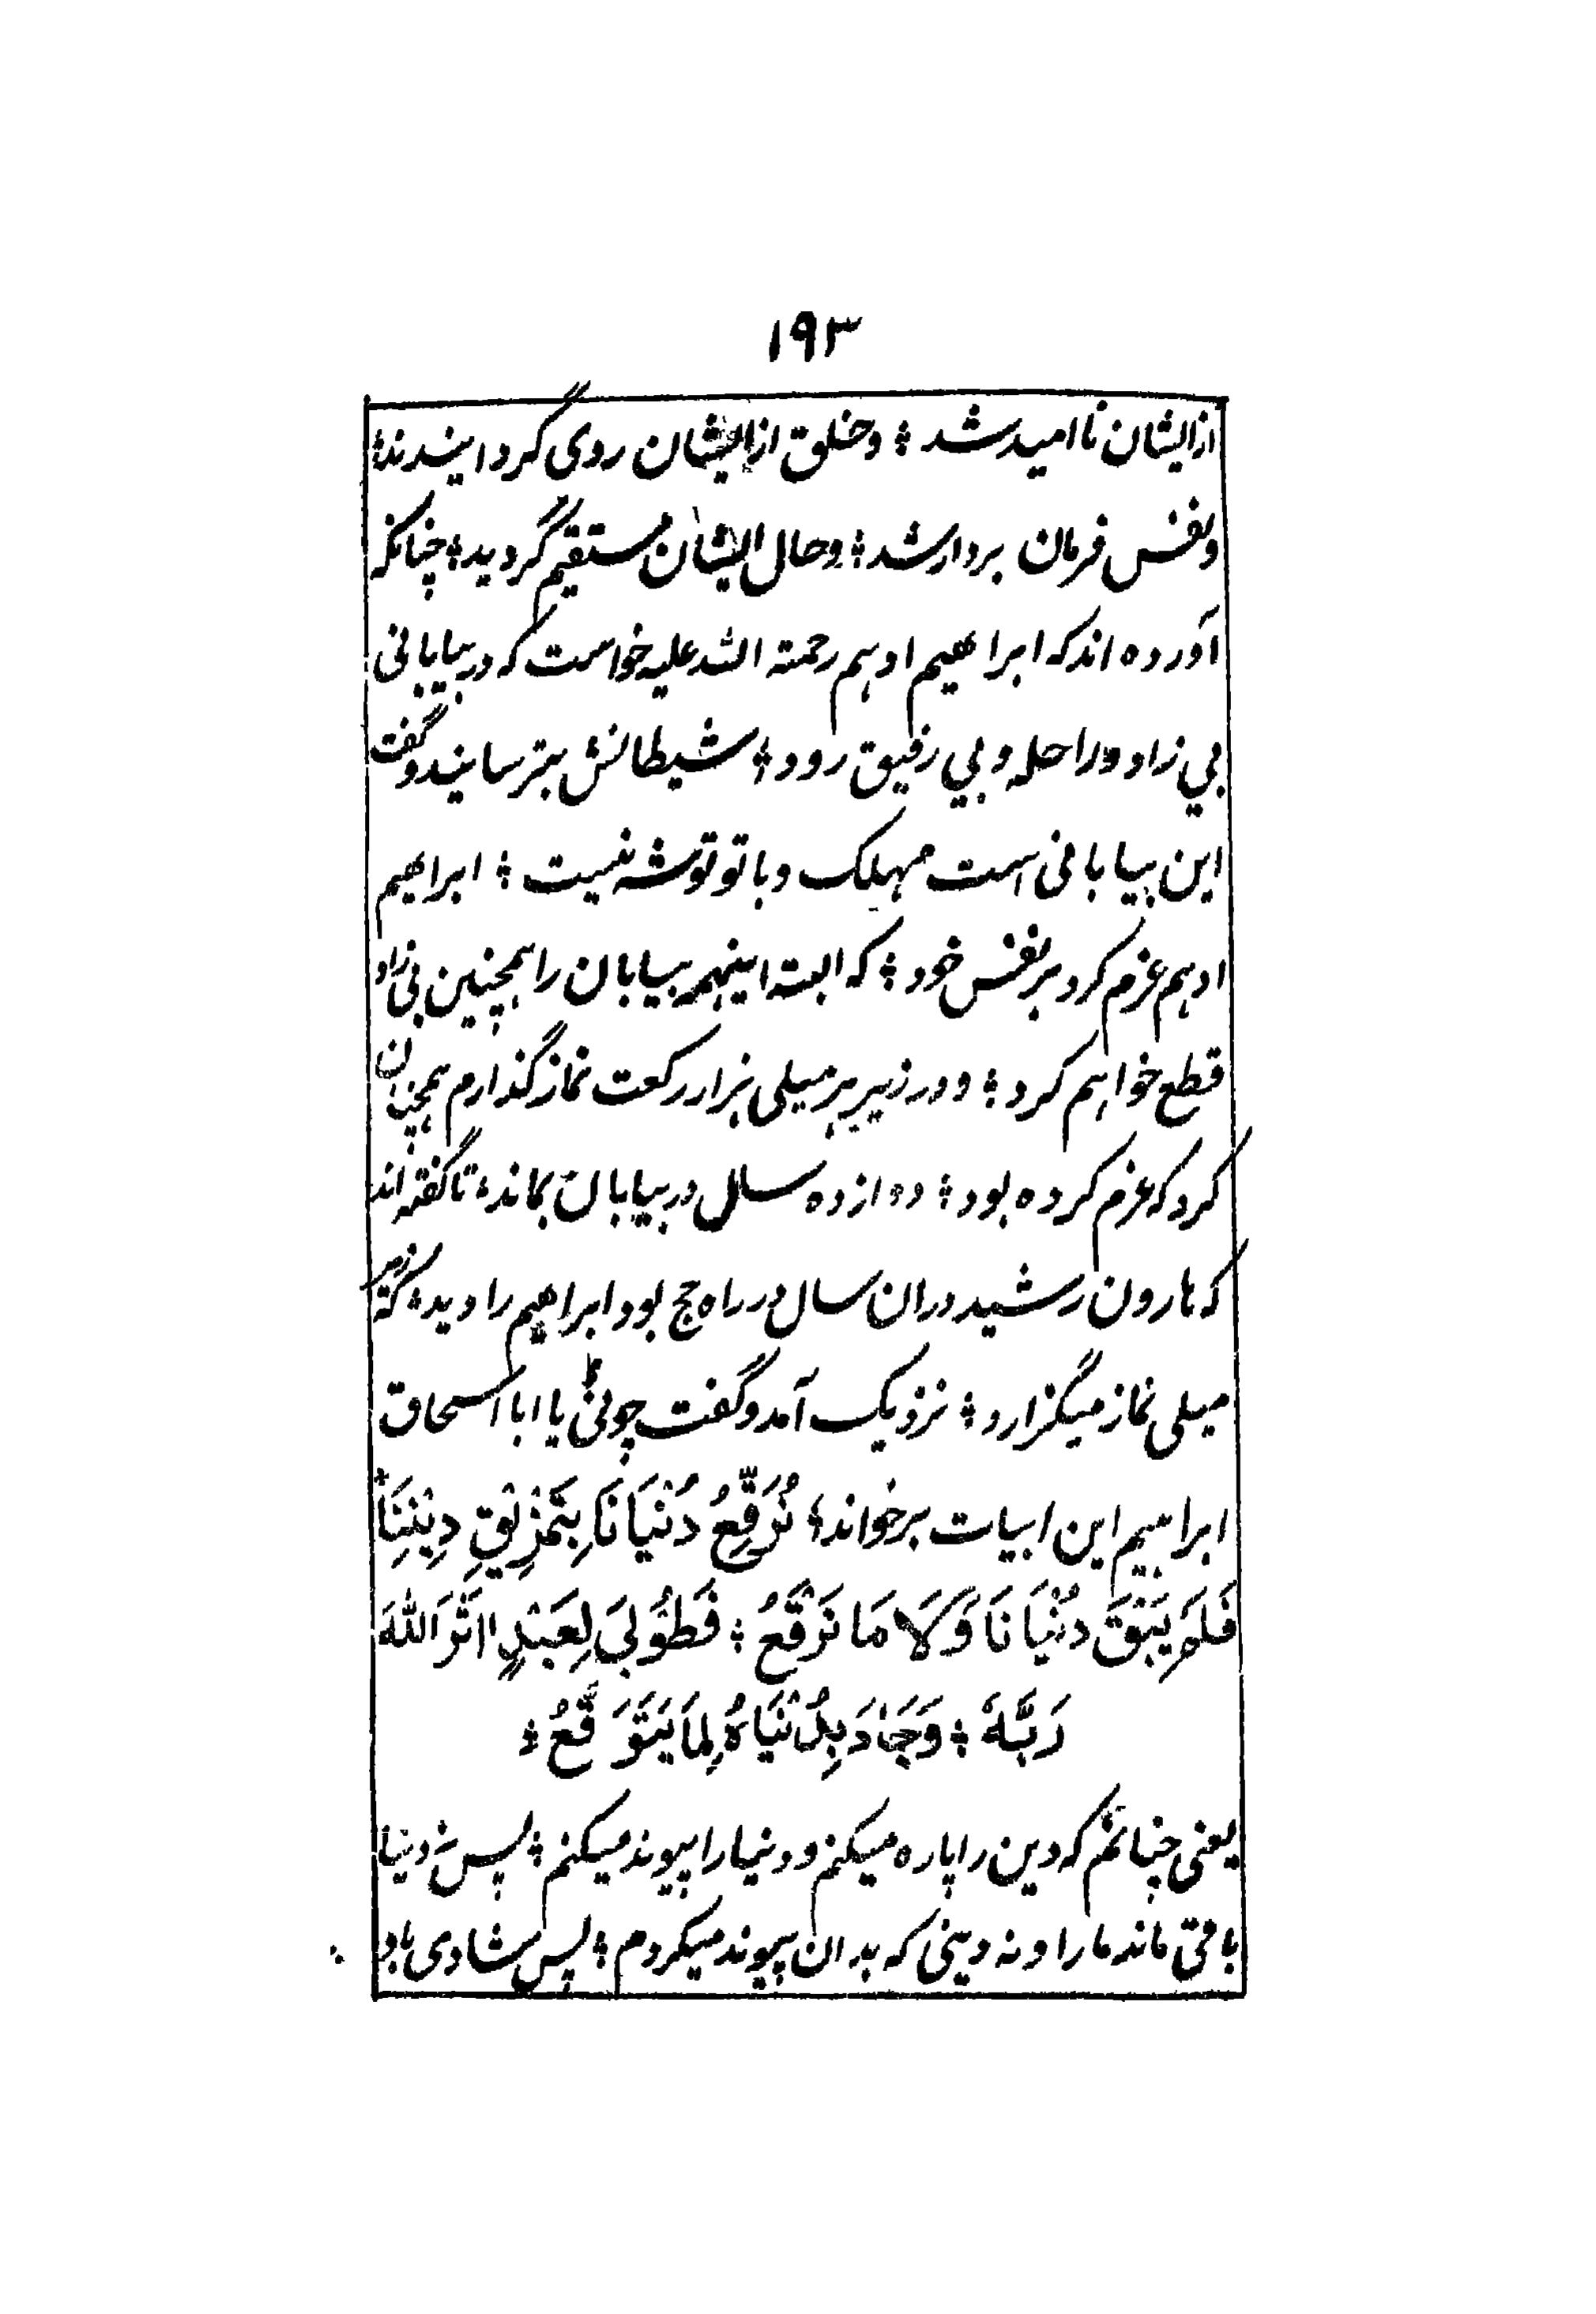 ۱۹۳
ازایشان ناامید شد ؛ وخلق ازایشان روی گردانیدند؛
ونفس فرمان بردار شد ؛ وحال ایشان مستقیم گردید ؛ چنانکه
آورده اند که ابراهیم ادهم رحمته الله علیه خواست که در بیابانی
بی زاد وراحله وبی رفیق رود ؛ شیطانش بترسانید وگفت
این بیابانی است مهلک وبا تو توشه نیست ؛ ابراهیم
ادهم عزم کرد برنفس خود ؛ که البته اینهمه بیابان را همچنین بی زاد
قطع خواهم کرد ؛ ودر زیر هر میلی هزار رکعت نماز گذارم همچنان
کرد که عزم کرده بود ؛ دوازده سال در بیابان بماند ؛ تا گفته اند
که هارون رشید دران سال در راه حج بود ابراهیم را دید ؛ که زیر
میلی نماز میگزارد ؛ نزدیک آمد وگفت چونی یا ابا اسحاق
ابراهیم این ابیات برخواند ؛ نُرَقِّعُ دُنْیَانَا بِتَمْزِیْقِ دِیْنِنَا ؛
فَلَمْ یَبْقَ دُنْیَانَا وَلَا مَا نُرَقِّعُ ؛ فَطُوْبَی لِعَبْدٍ اثَرَ اللهَ
رَبَّهُ ؛ وَجَادَ بِدُنْیَاهُ لِمَا یَتَوَقَّعُ ؛
یعنی چنانم که دین را پاره میکنم ودنیا را پیوند میکنم ؛ پس نه دنیا
باقی ماند مارا ونه دینی که بدان پیوند میکردم ؛ پس شادی باد